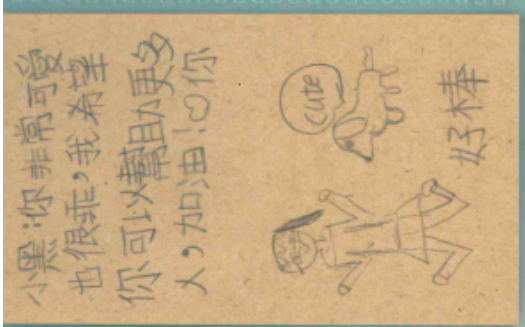 小黑:你非常可愛
也很乖,我希望
你可以幫助更多
人,加油!♡你
cute
好棒